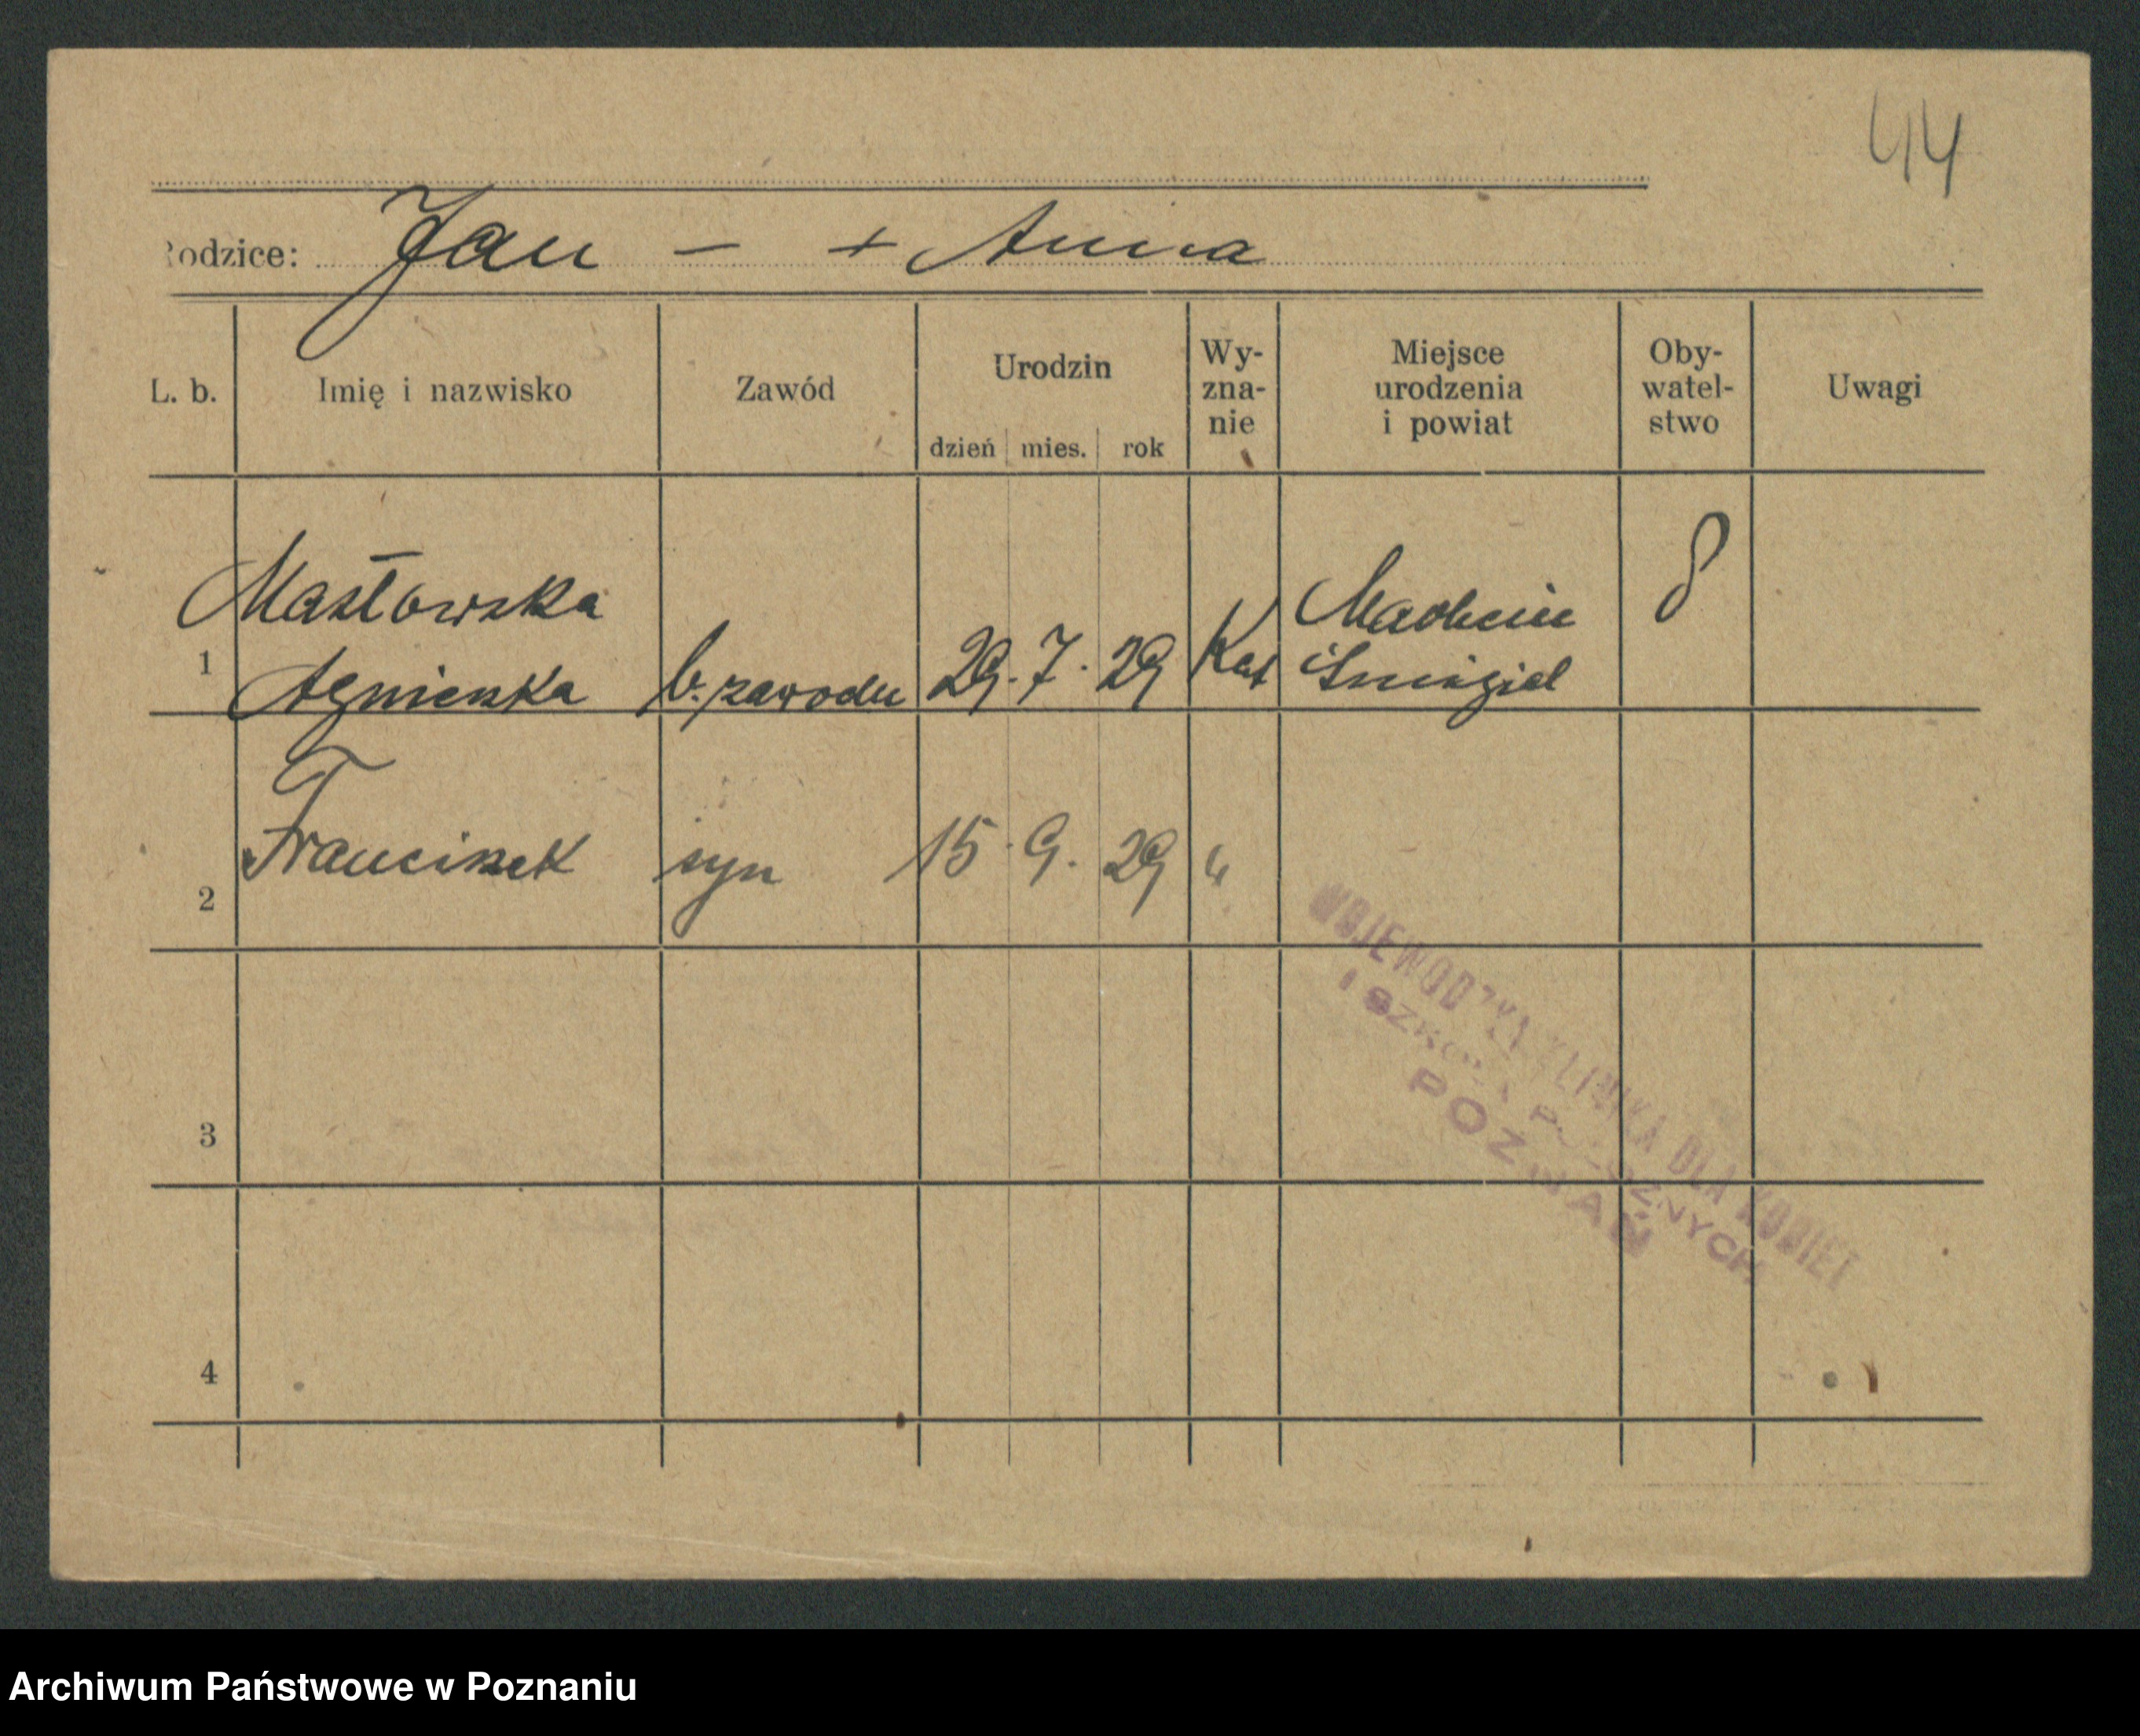 44
Rodzice: Jan — + Anna
L. b. Imię i nazwisko Zawód Urodzin dzień mies. rok Wy-zna-nie Miejsce urodzenia i powiat Oby-watel-stwo Uwagi
Masłowska
1 Agnieszka b. zawodu 29. 7. 29 Kat Śmigiel
2 Franciszek syn 15. 9. 29 "
3
4
WOJEWÓDZKA KLINIKA DLA KOBIET
I SZKOŁA POŁOŻNYCH
POZNAŃ
Archiwum Państwowe w Poznaniu